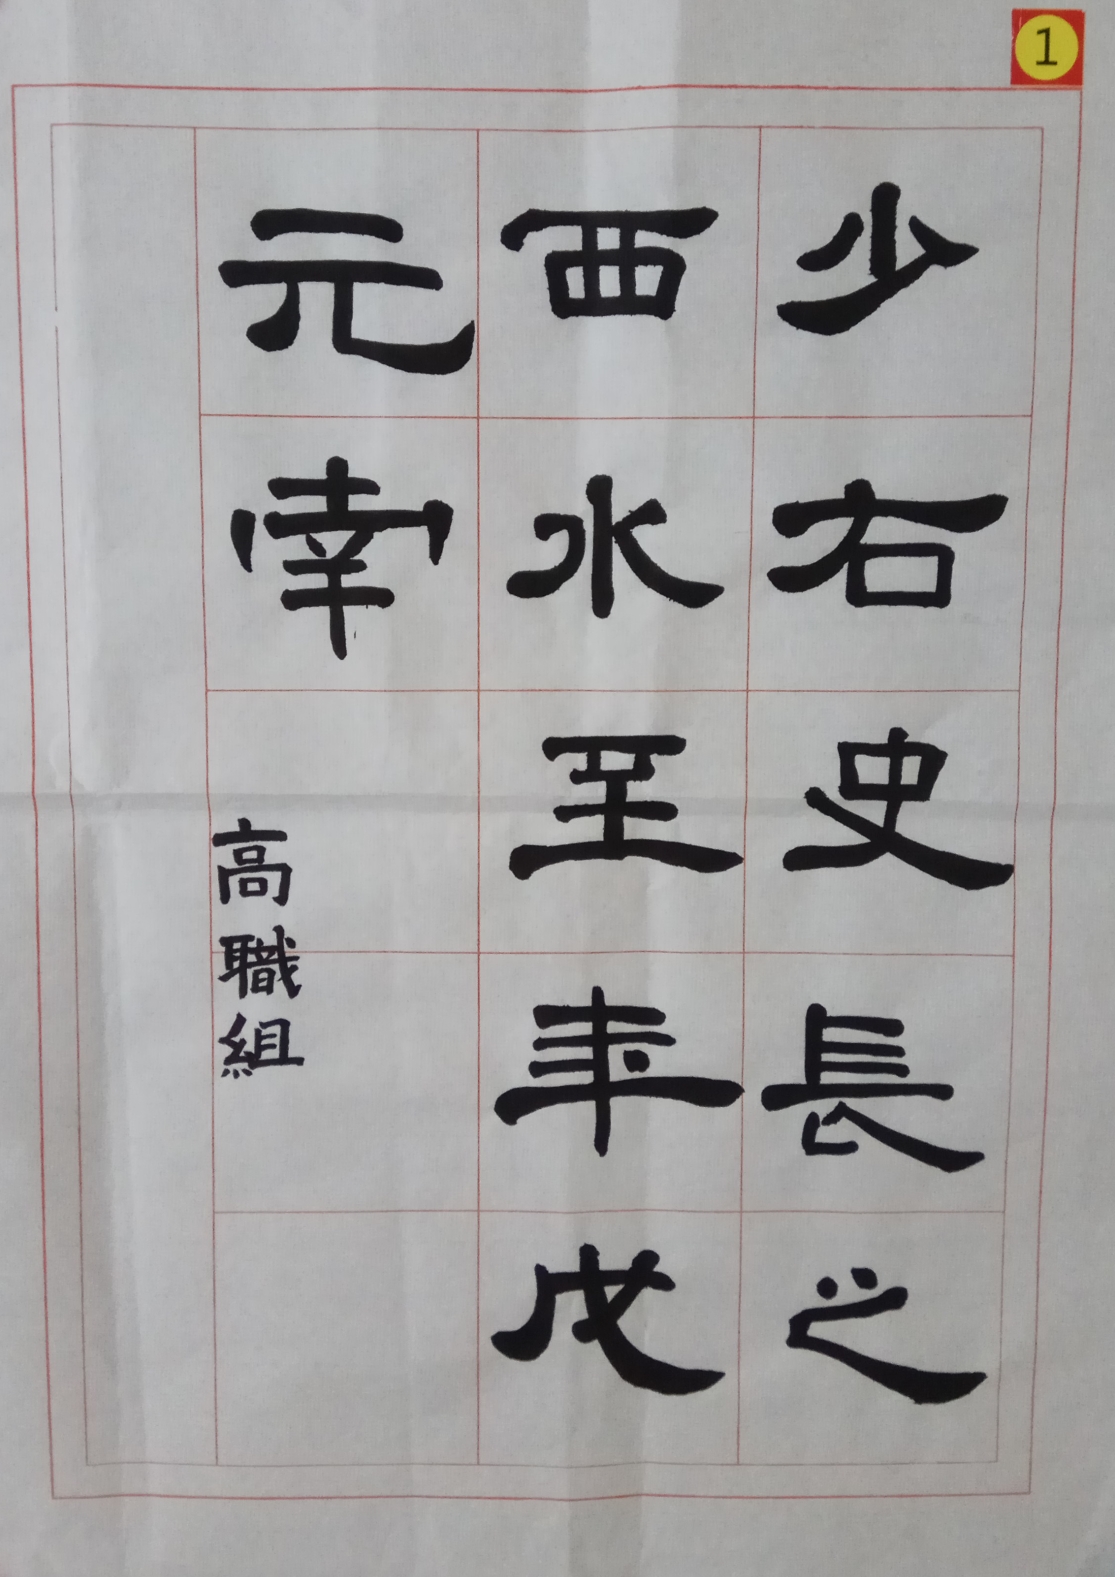 少右史長之
西水至年戊
元南
高職組
1